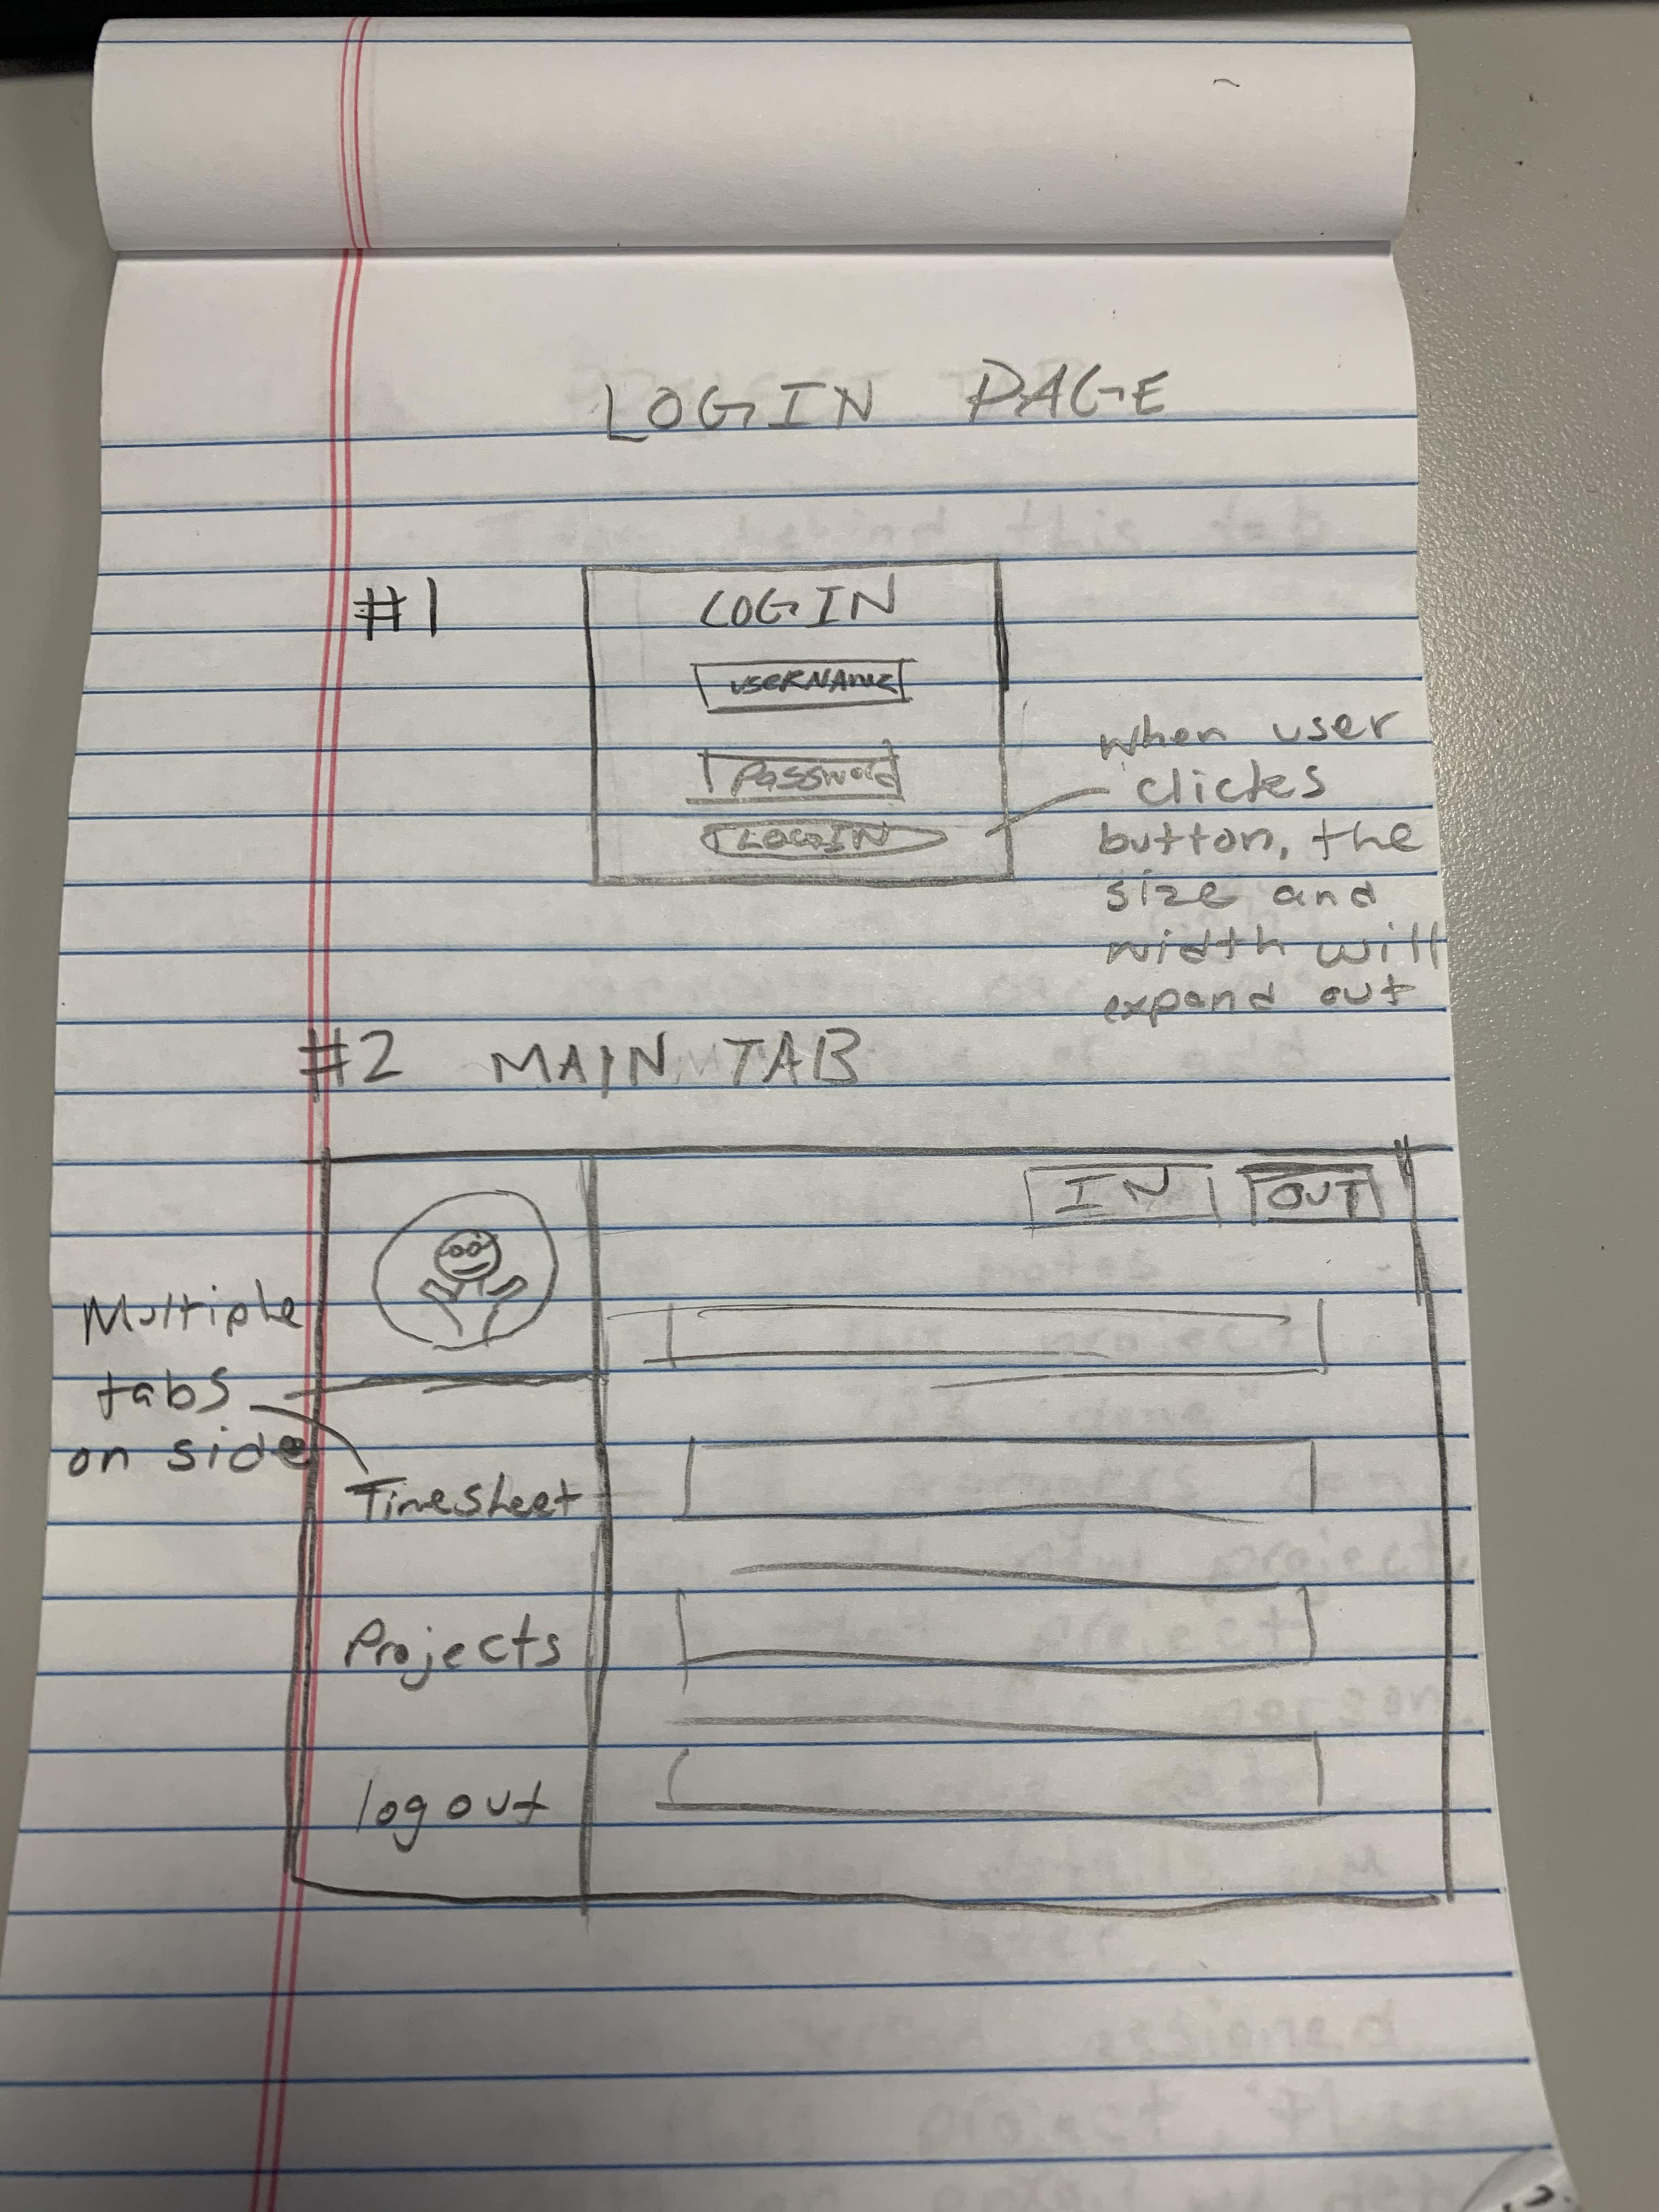 LOGIN PAGE
#1
LOGIN
USERNAME
Password
LOGIN
when user
clickes
button, the
size and
width will
expand out
#2 MAIN TAB
IN OUT
Multiple
tabs
on side
Timesheet
Projects
logout